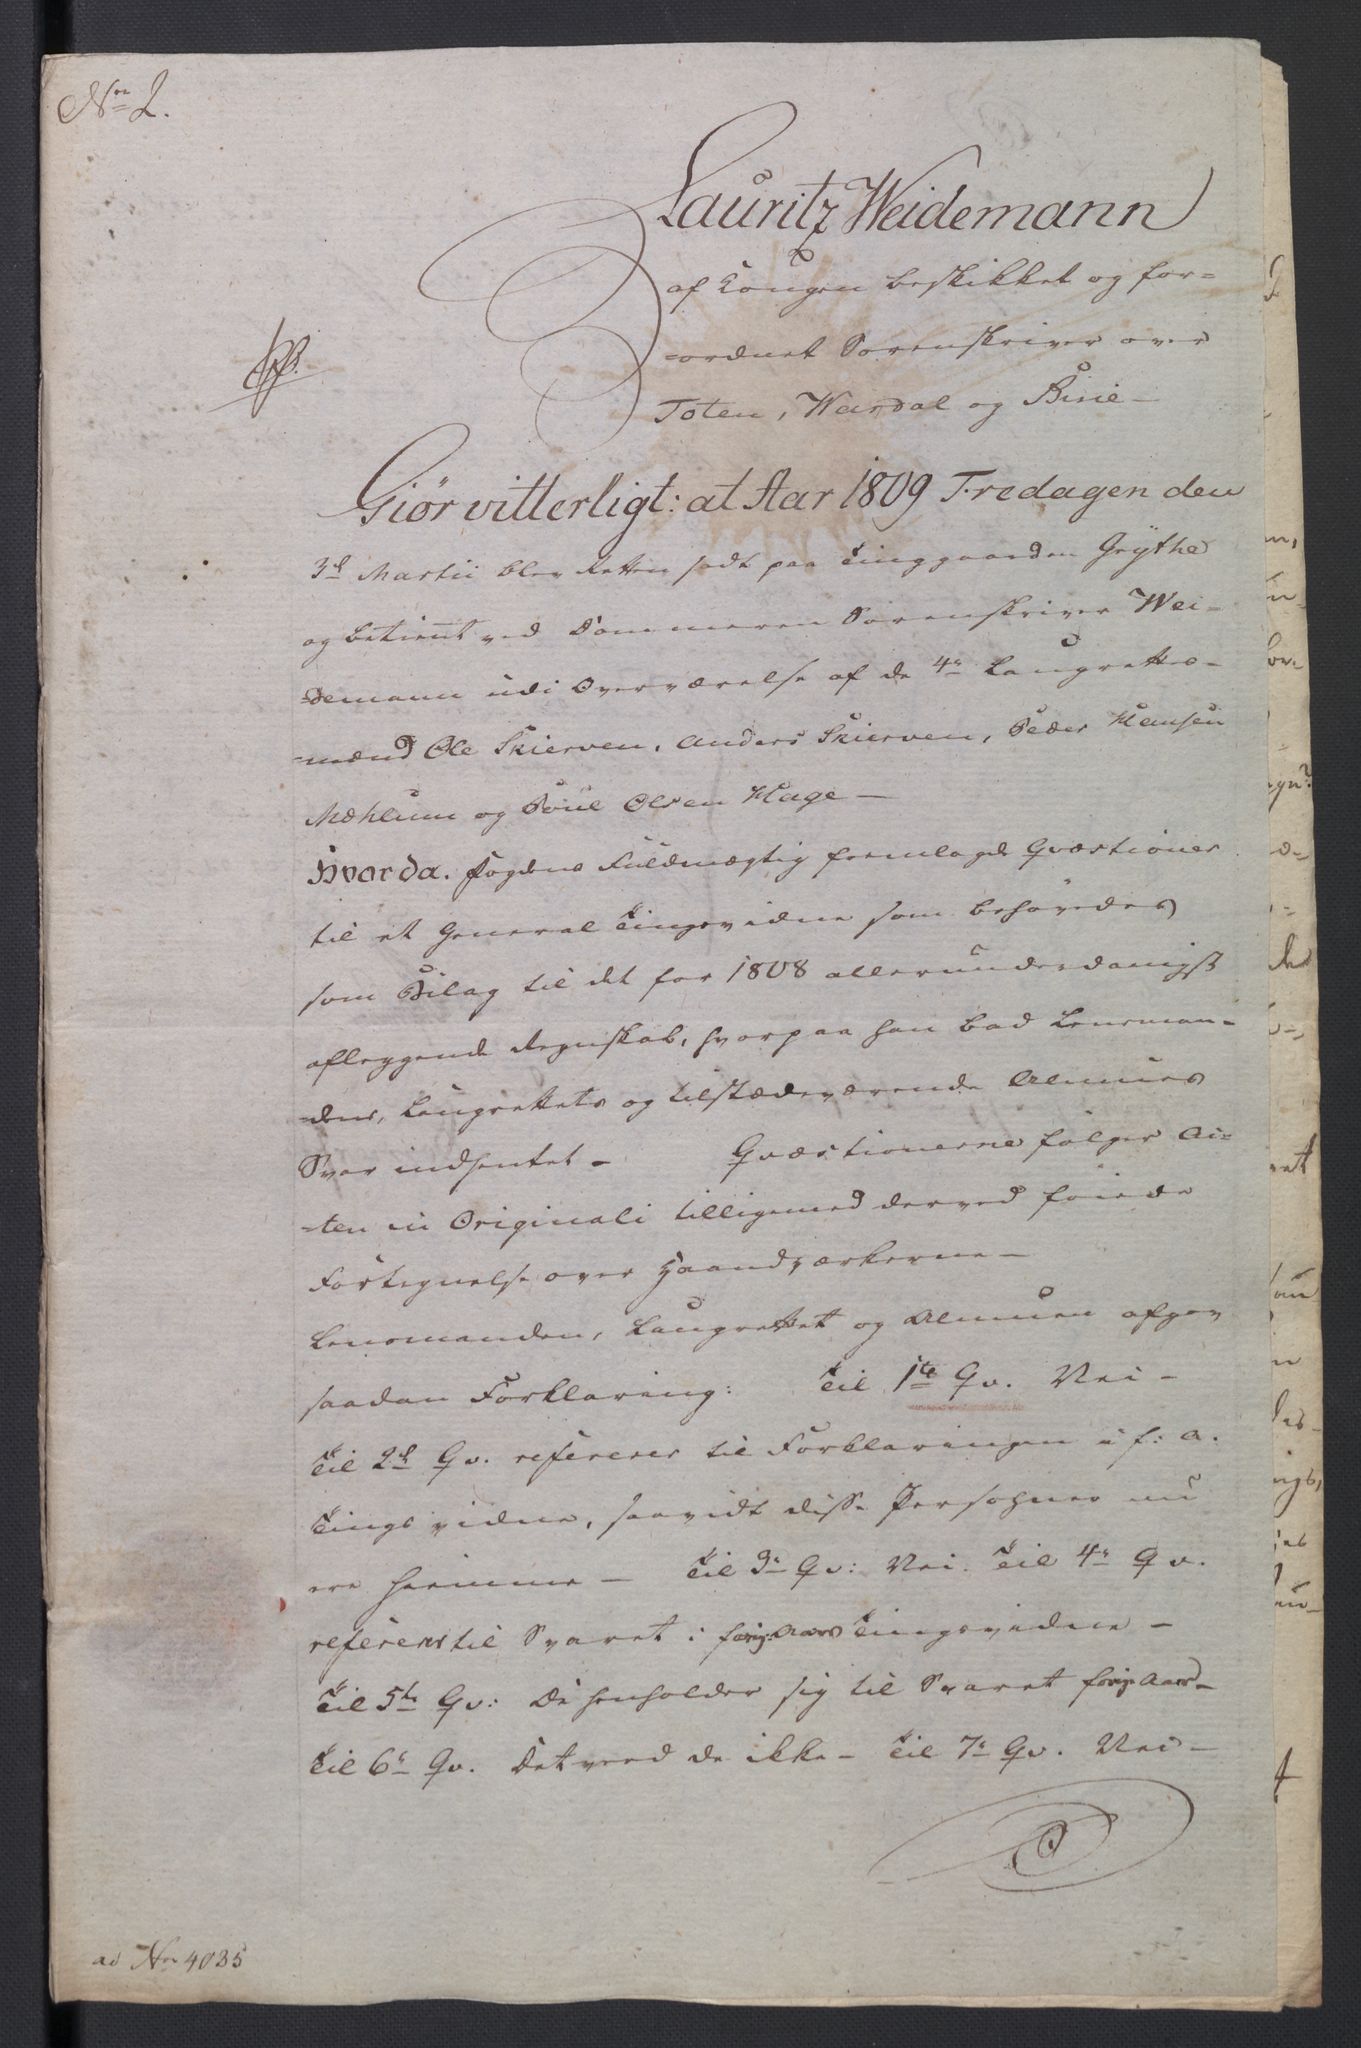 No 2.
Lauritz Weidemann
af Kongen beskikket og for=
=ordnet Sorenskriver over
Toten, Wardal og Birie —
Giør vitterligt: at Aar 1809 Fredagen den
3d Martii blev Retten sadt paa Tinggaarden Grythe
og betient ved Dommeren Sorenskriver Wei=
=demann udi Overværelse af de 4re Laugrettes=
=mænd Ole Skierven, Anders Skierven, Peder Hansen
Mæhlum og Poul Olsen Hage —
Hvorda. Fogdens Fuldmægtig fremlagde Qvæstioner
til et General Tingsvidne som behøvedes
som Bilag til det for 1808 allerunderdanigst
aflæggende Regnskab, hvorpaa han bad Lensman=
=dens, Laugrettets og tilstædeværende Almues
Svar indhentet — Qvæstionerne følger Ac=
=ten in Originali tilligemed derved føiede
Fortegnelse over Haandværkerne —
Lensmanden, Laugrettet og Almuen afgav
saadan Forklaring: Til 1te Qv. Nei —
Til 2d Qv. refererer til Forklaringen i f: A.
Tingsvidne, saavidt disse Persohner nu
ere hiemme — Til 3e Qv: Nei. Til 4e Qv.
referers til Svaret i forig: Aars Tingsvidne —
Til 5te Qv: De henholder sig til Svaret forig: Aars —
Til 6e Qv. Det veed de ikke — Til 7e Qv. Nei —
ad No 4035